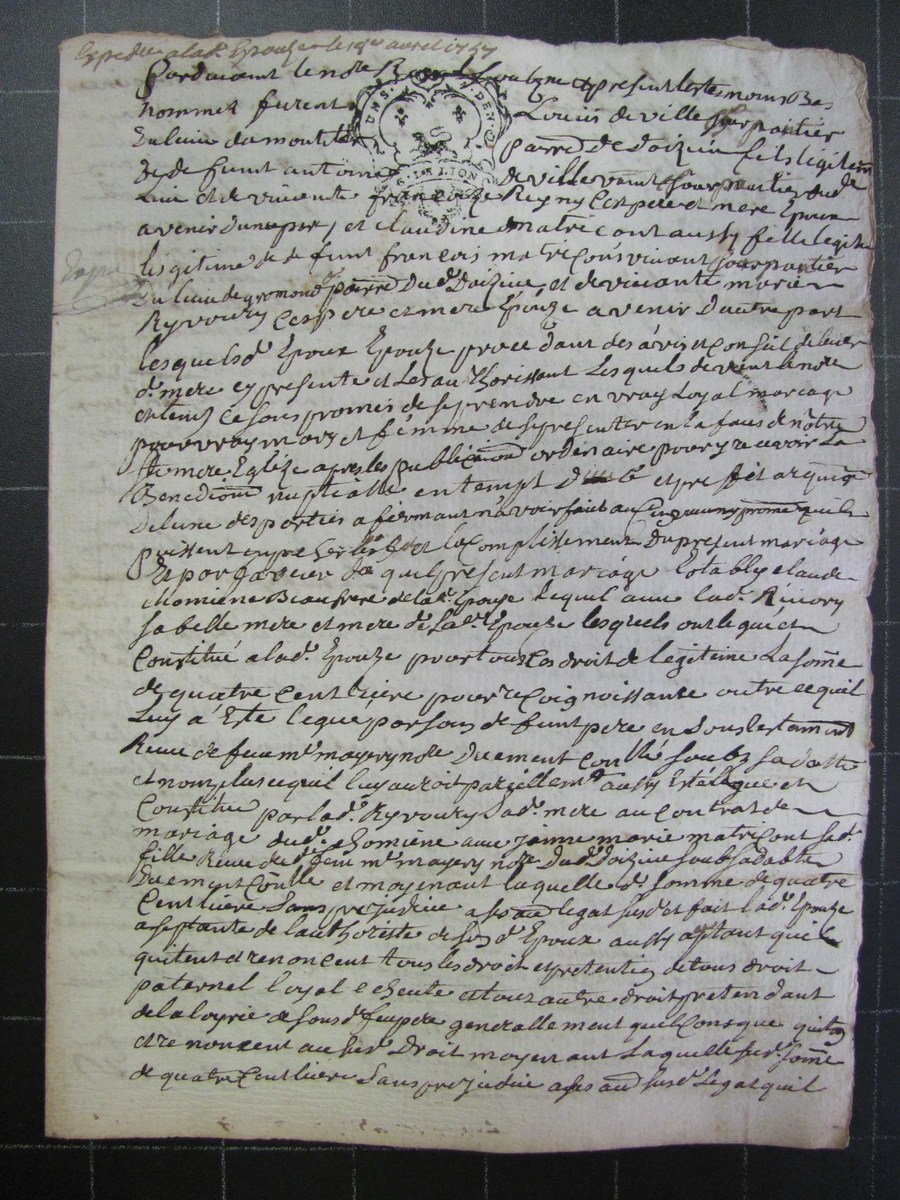 Expedie a lad. Epouze le 19e avril 1757
Pardavant le no.re R Soubzne et presents les temoins Bas
nommes furent Louis de ville fourpaitier
Du lieu du montel parre de Doizieu fils legitim
de defunt antoine de ville vivant fourpaitier dud.
Lieu et de vivante francoize Reyny Ces pere et mere Epoux
avenir d'une part et Claudine matricont aussy fille legite
legitime de defunt francois matricons vivant fourpaitier
Du lieu de gromond parre Dud. Doizieu et de vivante marie
Ryvoury Ces pere et mere Epouze a venir D'autre part
lesquels d. Epoux Epouze procedant des avis et Conseil de leur
d. mere cy presente et Les authorissant Lesquels de vant le no.re
et tem. ce sons promis de se prendre en vray Loyal mariage
pour vray mary et femme de se presenter en la face de nôtre
Ste mere Eglize apres les publications ordinaire pour y recevoir La
Benediction nuptialle en tempt D et premier requize
De l'une des parties afermant n'avoir fait aucung promes qu'ils
puissent enpecher le et lacomplissement Du present mariage
Et par faveur du quel present mariage Estably claude
chomiene Beaufrere de lad. Epouze lequel avec lad. Rivory
sa belle mere et mere de lad. Epouze lesquels ont legué et
Constitué a lad. Epouze pour tous Ces droit de legitime La some
de quatre Cent livre pour re Coignoissante outre ce quil
Luy a Este legue par sons defunt pere en Sons testament
Reçue de feu me mayery no.re Duement Conllé soubz sa datte
et nonplus ce quil luy auroit pareillemt aussy Esté legue et
Constitue par lad. Ryvoury sad. mere au Contrat de
mariage dud. chomiene avec Jeanne marie matricont sad.
fille Reçue dud. feu me mayery no.re Dud. Doizieu soub sa dabte
Duement Conlle et moyenant laquelle d. somme de quatre
Cent livre Sans prejudice a ses aud legat susd. et fait lad. Epouze
aseptante de lauthorité de son d. Epoux aussy aseptant qui
quitent et renoncent tous les droit et pretention de tous droit
paternel loyal echeute et tous autre droit pretendant
de la loyrie de sons d. feu pere generallement quelConsque quitos
et renoncent aud. susd. Droit moyenant Laquelle susd. some
de quatre Cent livre Sans prejudice a ses aud susd. Legat quil